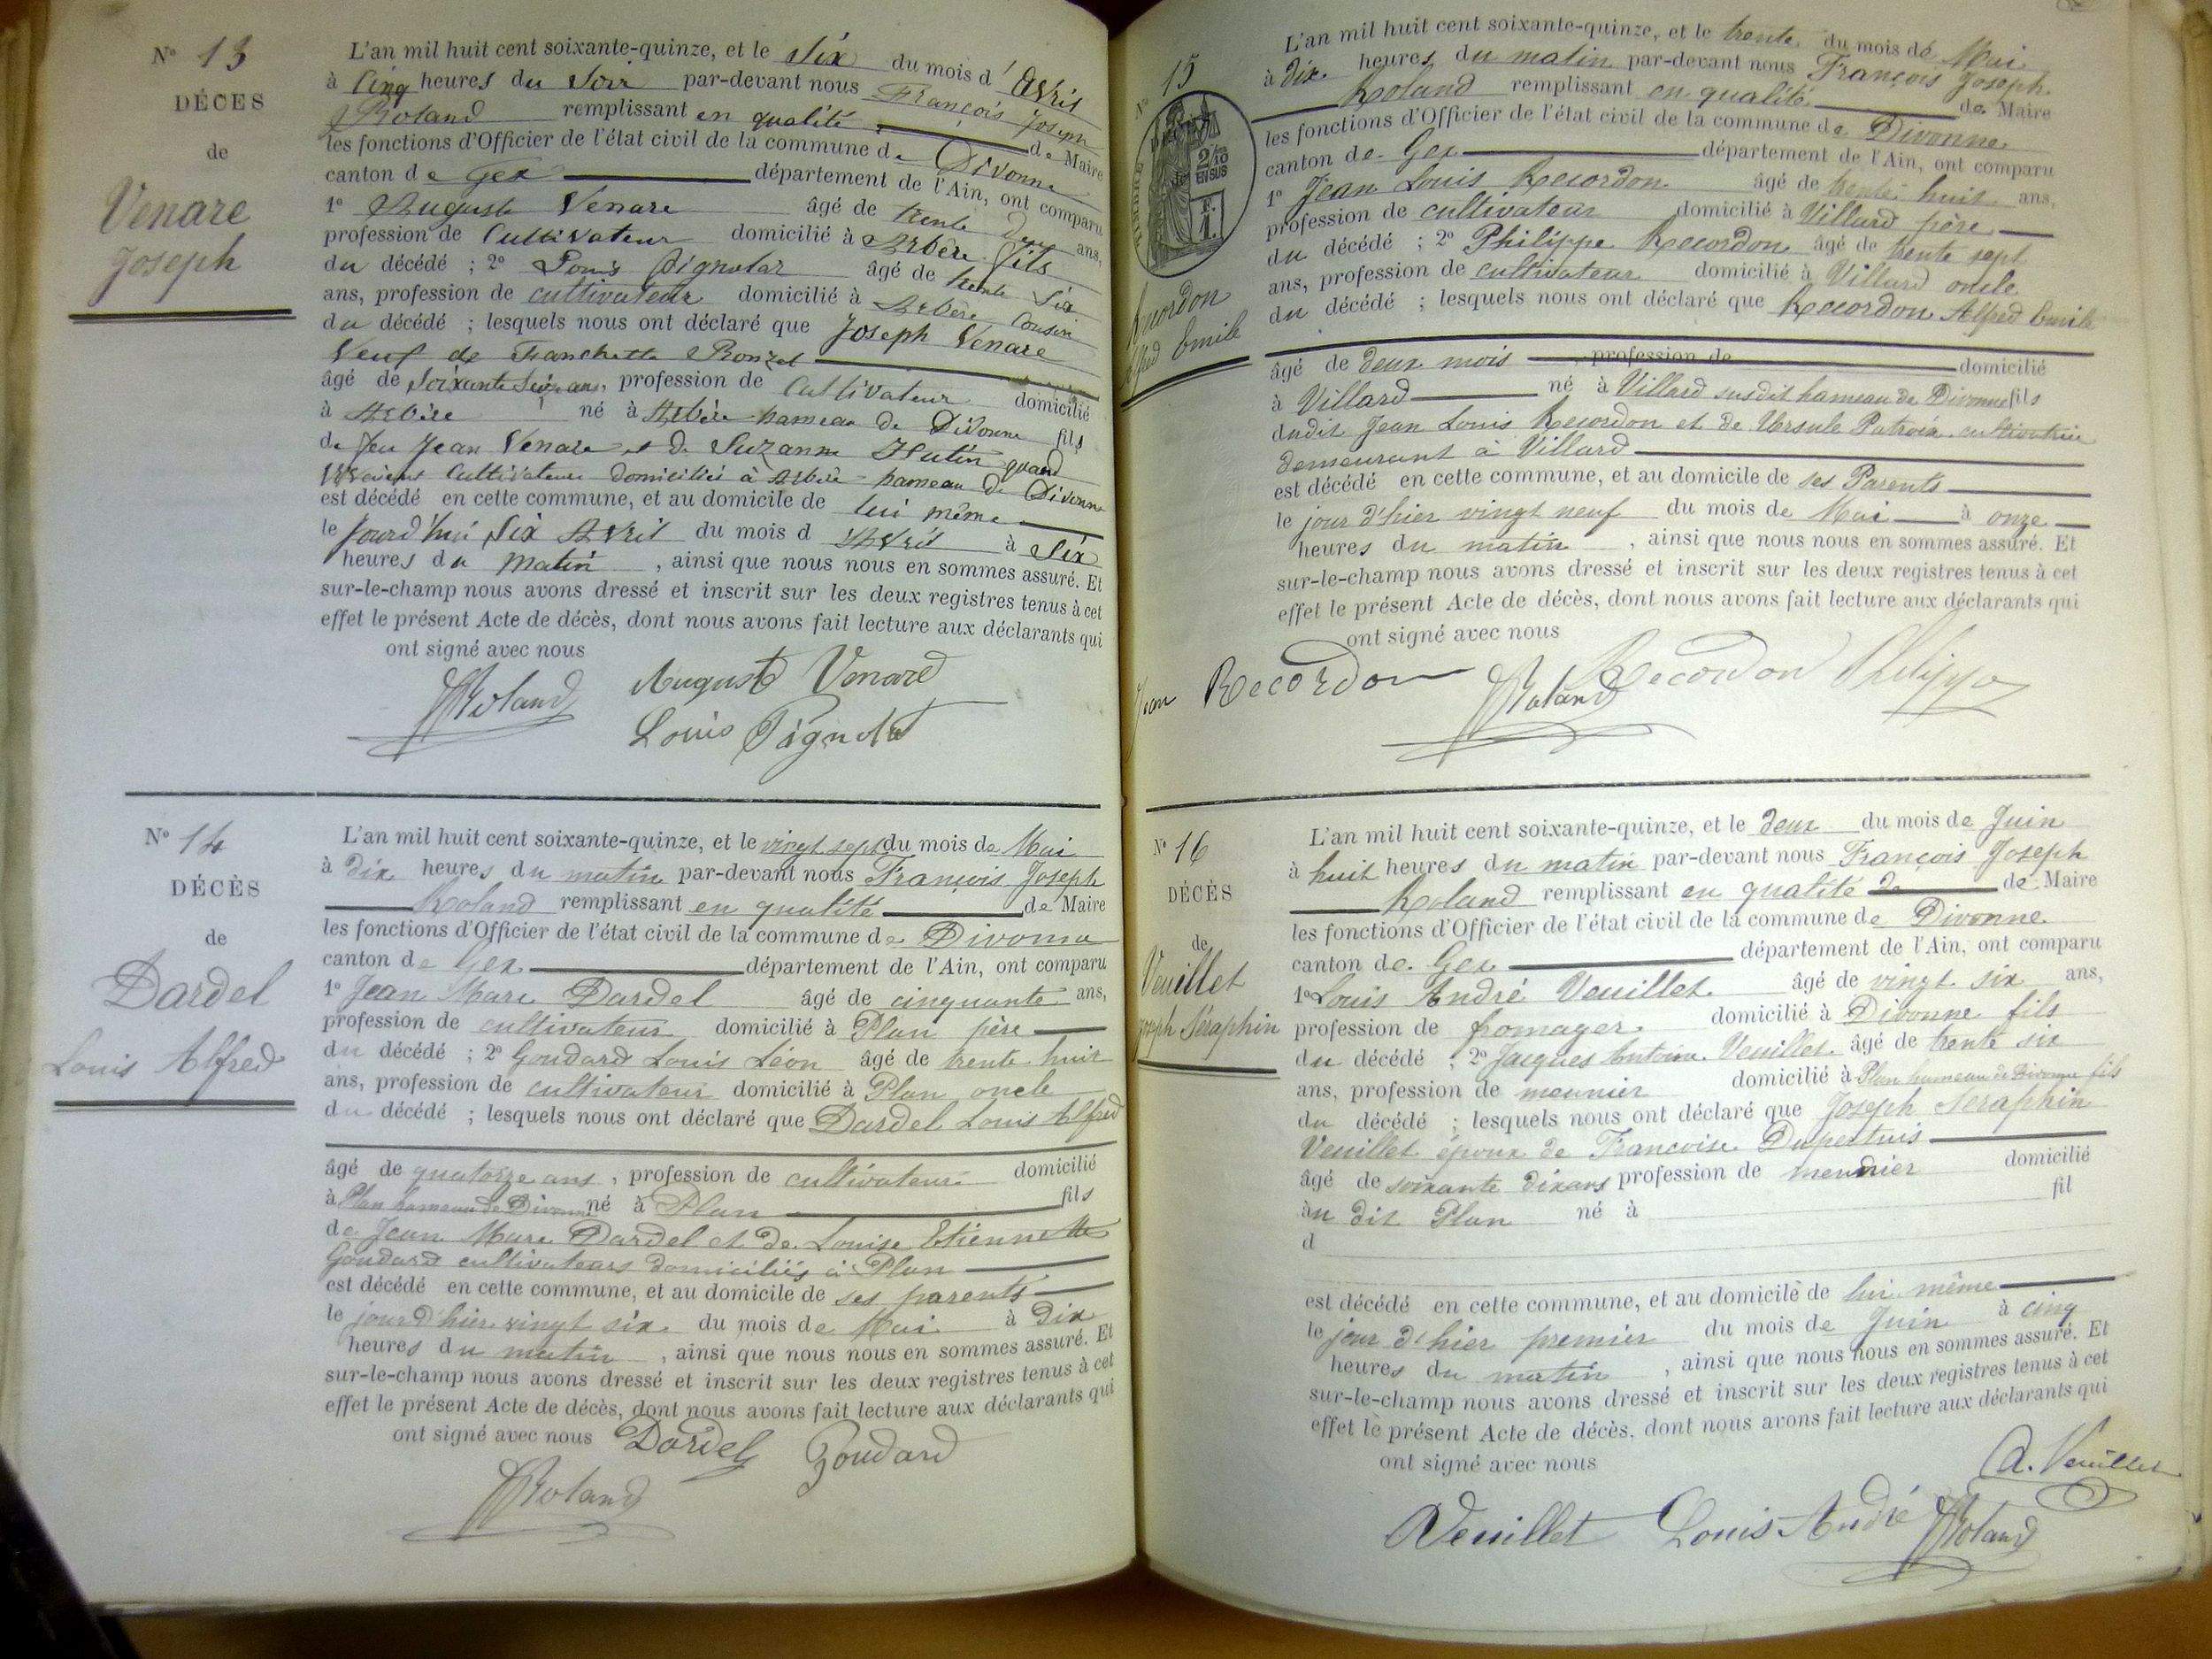 N° 13
DÉCES
de
Venare
Joseph
L'an mil huit cent soixante-quinze, et le Six du mois d'Avril
à Cinq heures du Soir par-devant nous François Joseph
Roland remplissant en qualité de Maire
les fonctions d'Officier de l'état civil de la commune de Divonne
canton de Gex département de l'Ain, ont comparu
1° Auguste Venare âgé de trente deux ans,
profession de Cultivateur domicilié à Arbère fils
du décédé ; 2° Louis Pignolat âgé de trente Six
ans, profession de cultivateur domicilié à Arbère Cousin
du décédé ; lesquels nous ont déclaré que Joseph Venare
Veuf de Franchette Ronzet
âgé de Soixante ans, profession de Cultivateur domicilié
à Arbère né à Arbère hameau de Divonne fils
de feu Jean Venare et de Suzanne Hutin quand
vivaient Cultivateurs domiciliés à Arbère hameau de Divonne
est décédé en cette commune, et au domicile de lui même
le Jourd'hui Six Avril du mois d Avril à Six
heures du Matin , ainsi que nous nous en sommes assuré. Et
sur-le-champ nous avons dressé et inscrit sur les deux registres tenus à cet
effet le présent Acte de décès, dont nous avons fait lecture aux déclarants qui
ont signé avec nous
JRoland Auguste Venare
Louis Pignolat
N° 14
DÉCÈS
de
Dardel
Louis Alfred
L'an mil huit cent soixante-quinze, et le vingt sept du mois de Mai
à Dix heures du matin par-devant nous François Joseph
Roland remplissant en qualité de Maire
les fonctions d'Officier de l'état civil de la commune de Divonne
canton de Gex département de l'Ain, ont comparu
1° Jean Marc Dardel âgé de cinquante ans,
profession de cultivateur domicilié à Plan père
du décédé ; 2° Goudard Louis Léon âgé de trente huit
ans, profession de cultivateur domicilié à Plan oncle
du décédé ; lesquels nous ont déclaré que Dardel Louis Alfred
âgé de quatorze ans , profession de cultivateur domicilié
à Plan hameau de Divonne né à Plan fils
de Jean Marc Dardel et de Louise Etiennette
Goudard cultivateurs domiciliés à Plan
est décédé en cette commune, et au domicile de ses parents
le jour d'hier vingt six du mois de Mai à Dix
heures du matin , ainsi que nous nous en sommes assuré. Et
sur-le-champ nous avons dressé et inscrit sur les deux registres tenus à cet
effet le présent Acte de décès, dont nous avons fait lecture aux déclarants qui
ont signé avec nous Dardel Goudard
JRoland
N° 15
TIMBRE
2/10
EN SUS
F.
1.
Recordon
Alfred Emile
L'an mil huit cent soixante-quinze, et le trente du mois de Mai
à Dix heures du matin par-devant nous François Joseph
Roland remplissant en qualité de Maire
les fonctions d'Officier de l'état civil de la commune de Divonne
canton de Gex département de l'Ain, ont comparu
1° Jean Louis Recordon âgé de trente huit ans,
profession de cultivateur domicilié à Villard père
du décédé ; 2° Philippe Recordon âgé de trente sept
ans, profession de cultivateur domicilié à Villard oncle
du décédé ; lesquels nous ont déclaré que Recordon Alfred Emile
âgé de deux mois profession de domicilié
à Villard né à Villard susdit hameau de Divonne fils
dudit Jean Louis Recordon et de Ursule Patroix cultivatrice
demeurant à Villard
est décédé en cette commune, et au domicile de ses Parents
le jour d'hier vingt neuf du mois de Mai à onze
heures du matin , ainsi que nous nous en sommes assuré. Et
sur-le-champ nous avons dressé et inscrit sur les deux registres tenus à cet
effet le présent Acte de décès, dont nous avons fait lecture aux déclarants qui
ont signé avec nous
Jean Recordon JRoland Recordon Philippe
N° 16
DÉCÈS
de
Veuillet
Joseph Séraphin
L'an mil huit cent soixante-quinze, et le deux du mois de Juin
à huit heures du matin par-devant nous François Joseph
Roland remplissant en qualité de de Maire
les fonctions d'Officier de l'état civil de la commune de Divonne
canton de Gex département de l'Ain, ont comparu
1° Louis André Veuillet âgé de vingt six ans,
profession de fromager domicilié à Divonne fils
du décédé ; 2° Jacques Antoine Veuillet âgé de trente six
ans, profession de meunier domicilié à Plan hameau de Divonne fils
du décédé ; lesquels nous ont déclaré que Joseph Seraphin
Veuillet époux de Francoise Dupertuis
âgé de soixante dix ans profession de meunier domicilié
au dit Plan né à fil
d
est décédé en cette commune, et au domicile de lui même
le jour d'hier premier du mois de Juin à cinq
heures du matin , ainsi que nous nous en sommes assuré. Et
sur-le-champ nous avons dressé et inscrit sur les deux registres tenus à cet
effet le présent Acte de décès, dont nous avons fait lecture aux déclarants qui
ont signé avec nous A. Veuillet
Veuillet Louis André JRoland